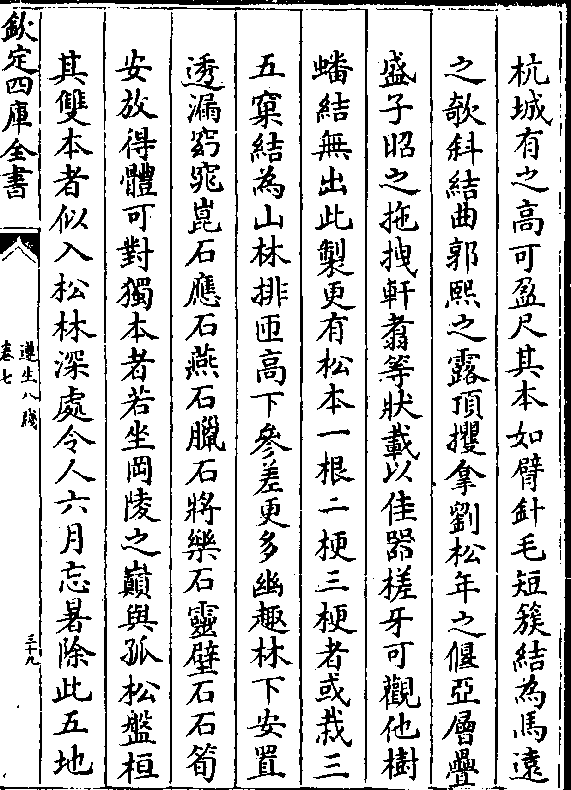 杭城有之高可盈尺其本如臂針毛短簇結為馬遠
之欹斜結曲郭熙之露頂攫拿劉松年之偃亞層疊
盛子昭之拖拽軒翥等狀載以佳器槎牙可觀他樹
蟠結無出此製更有松本一根二梗三梗者或栽三
五窠結為山林排匝高下參差更多幽趣林下安置
透漏窈窕崑石應石燕石臘石將樂石靈壁石石筍
安放得體可對獨本者若坐岡陵之巔與孤松盤桓
其雙本者似入松林深處令人六月忘暑除此五地
欽定四庫全書
遵生八牋
卷七
三十九